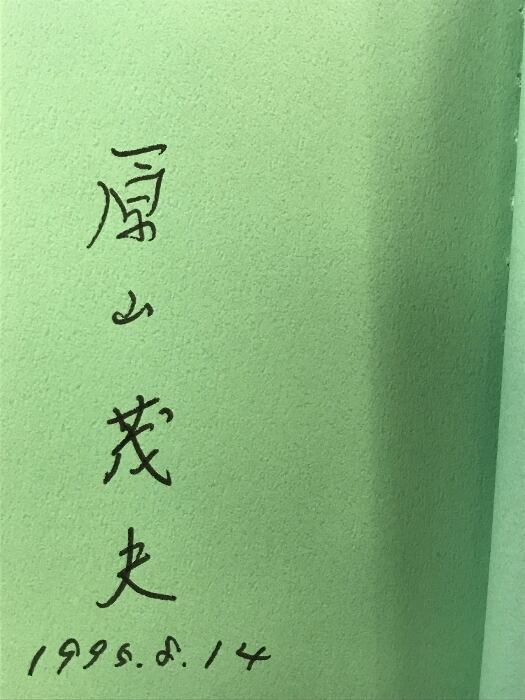 原山茂夫
1995.8.14